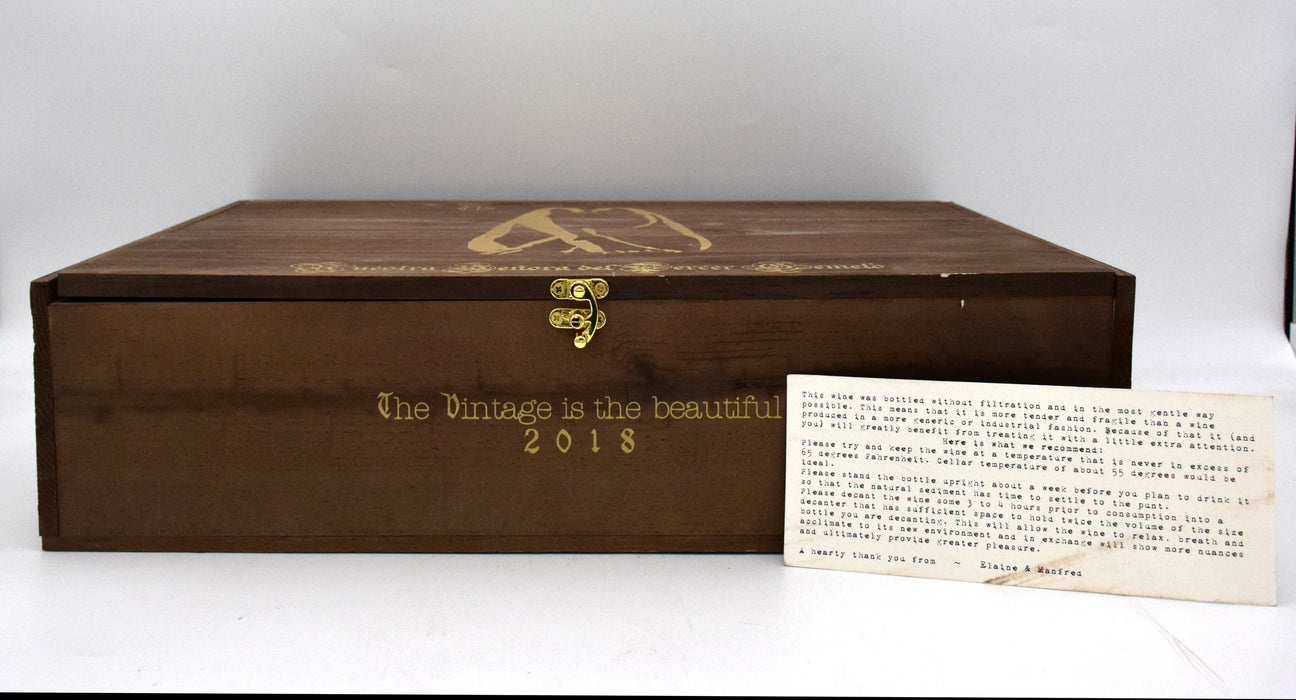 Nuestra Señora del Tercer Gemelo
The Vintage is the beautiful
2018
This wine was bottled without filtration and in the most gentle way
possible. This means that it is more tender and fragile than a wine
produced in a more generic or industrial fashion. Because of that it (and
you) will greatly benefit from treating it with a little extra attention.
Here is what we recommend:
Please try and keep the wine at a temperature that is never in excess of
65 degrees Fahrenheit. Cellar temperature of about 55 degrees would be
ideal.
Please stand the bottle upright about a week before you plan to drink it
so that the natural sediment has time to settle to the punt.
Please decant the wine some 3 to 4 hours prior to consumption into a
decanter that has sufficient space to hold twice the volume of the size
bottle you are decanting. This will allow the wine to relax. breath and
acclimate to its new environment and in exchange will show more nuances
and ultimately provide greater pleasure.
A hearty thank you from ~ Elaine & Manfred